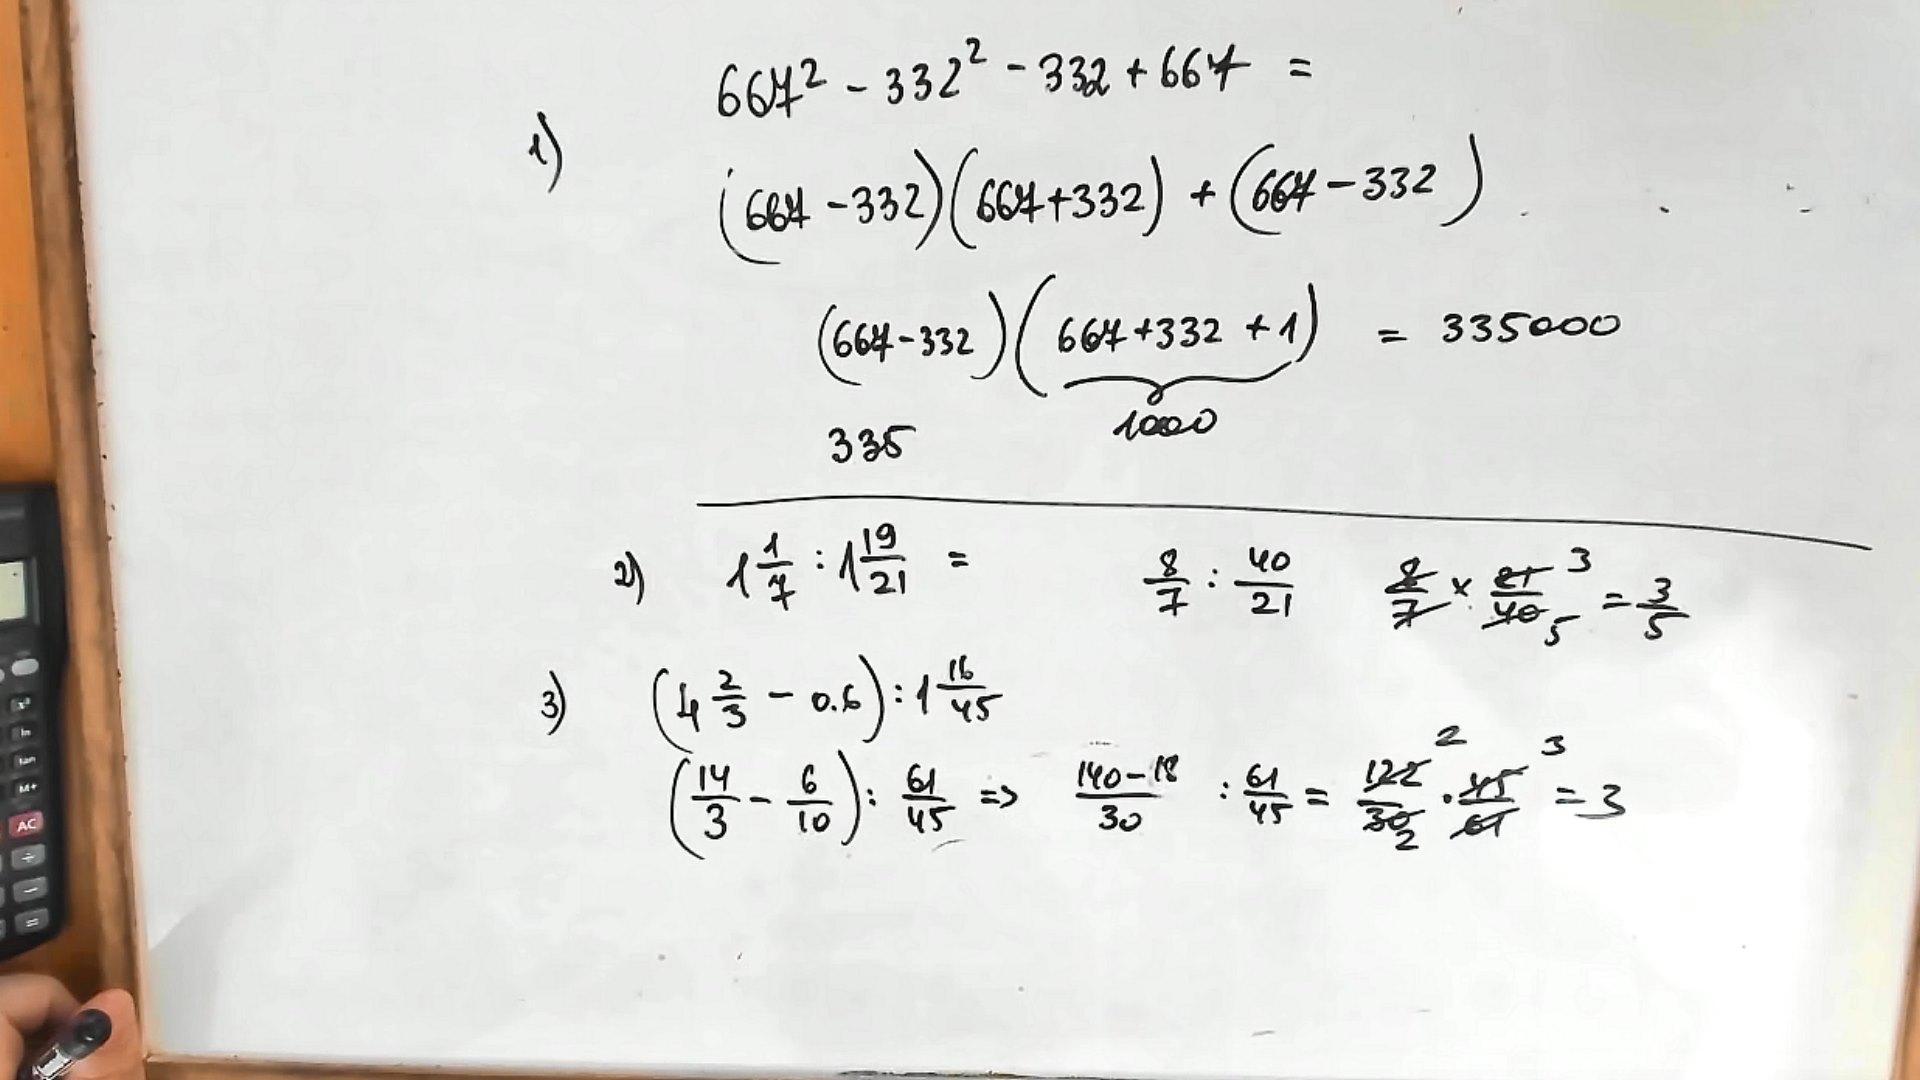 667² - 332² - 332 + 667 =
1)
(667 - 332)(667+332) + (667 - 332)
(667-332)(667+332 +1) = 335000
335 1000
2) 1 1/7 : 1 19/21 = 8/7 : 40/21 8/7 × 21/40 3 5 = 3/5
3) (4 2/3 - 0.6) : 1 16/45
(14/3 - 6/10) : 61/45 => 140-18/30 : 61/45 = 122/30 2 2 · 45/61 3 = 3
x²
ln
tan
M+
AC
÷
−
=